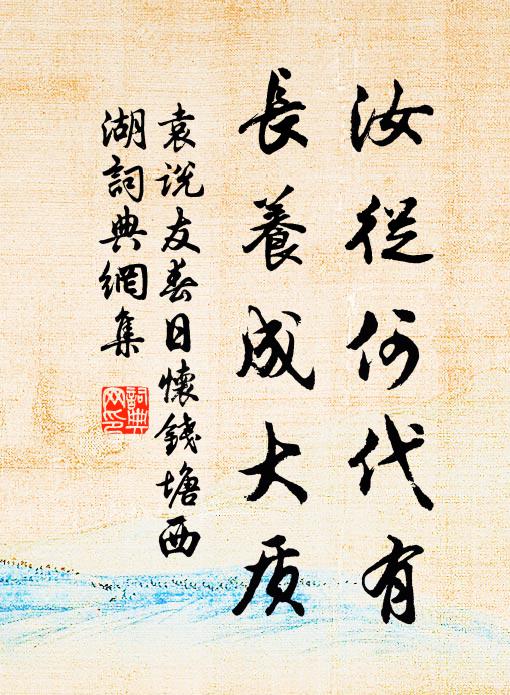 汝從何代有
長養成大质
袁说友春日懷錢塘西
湖詞典網集
詞典
网印